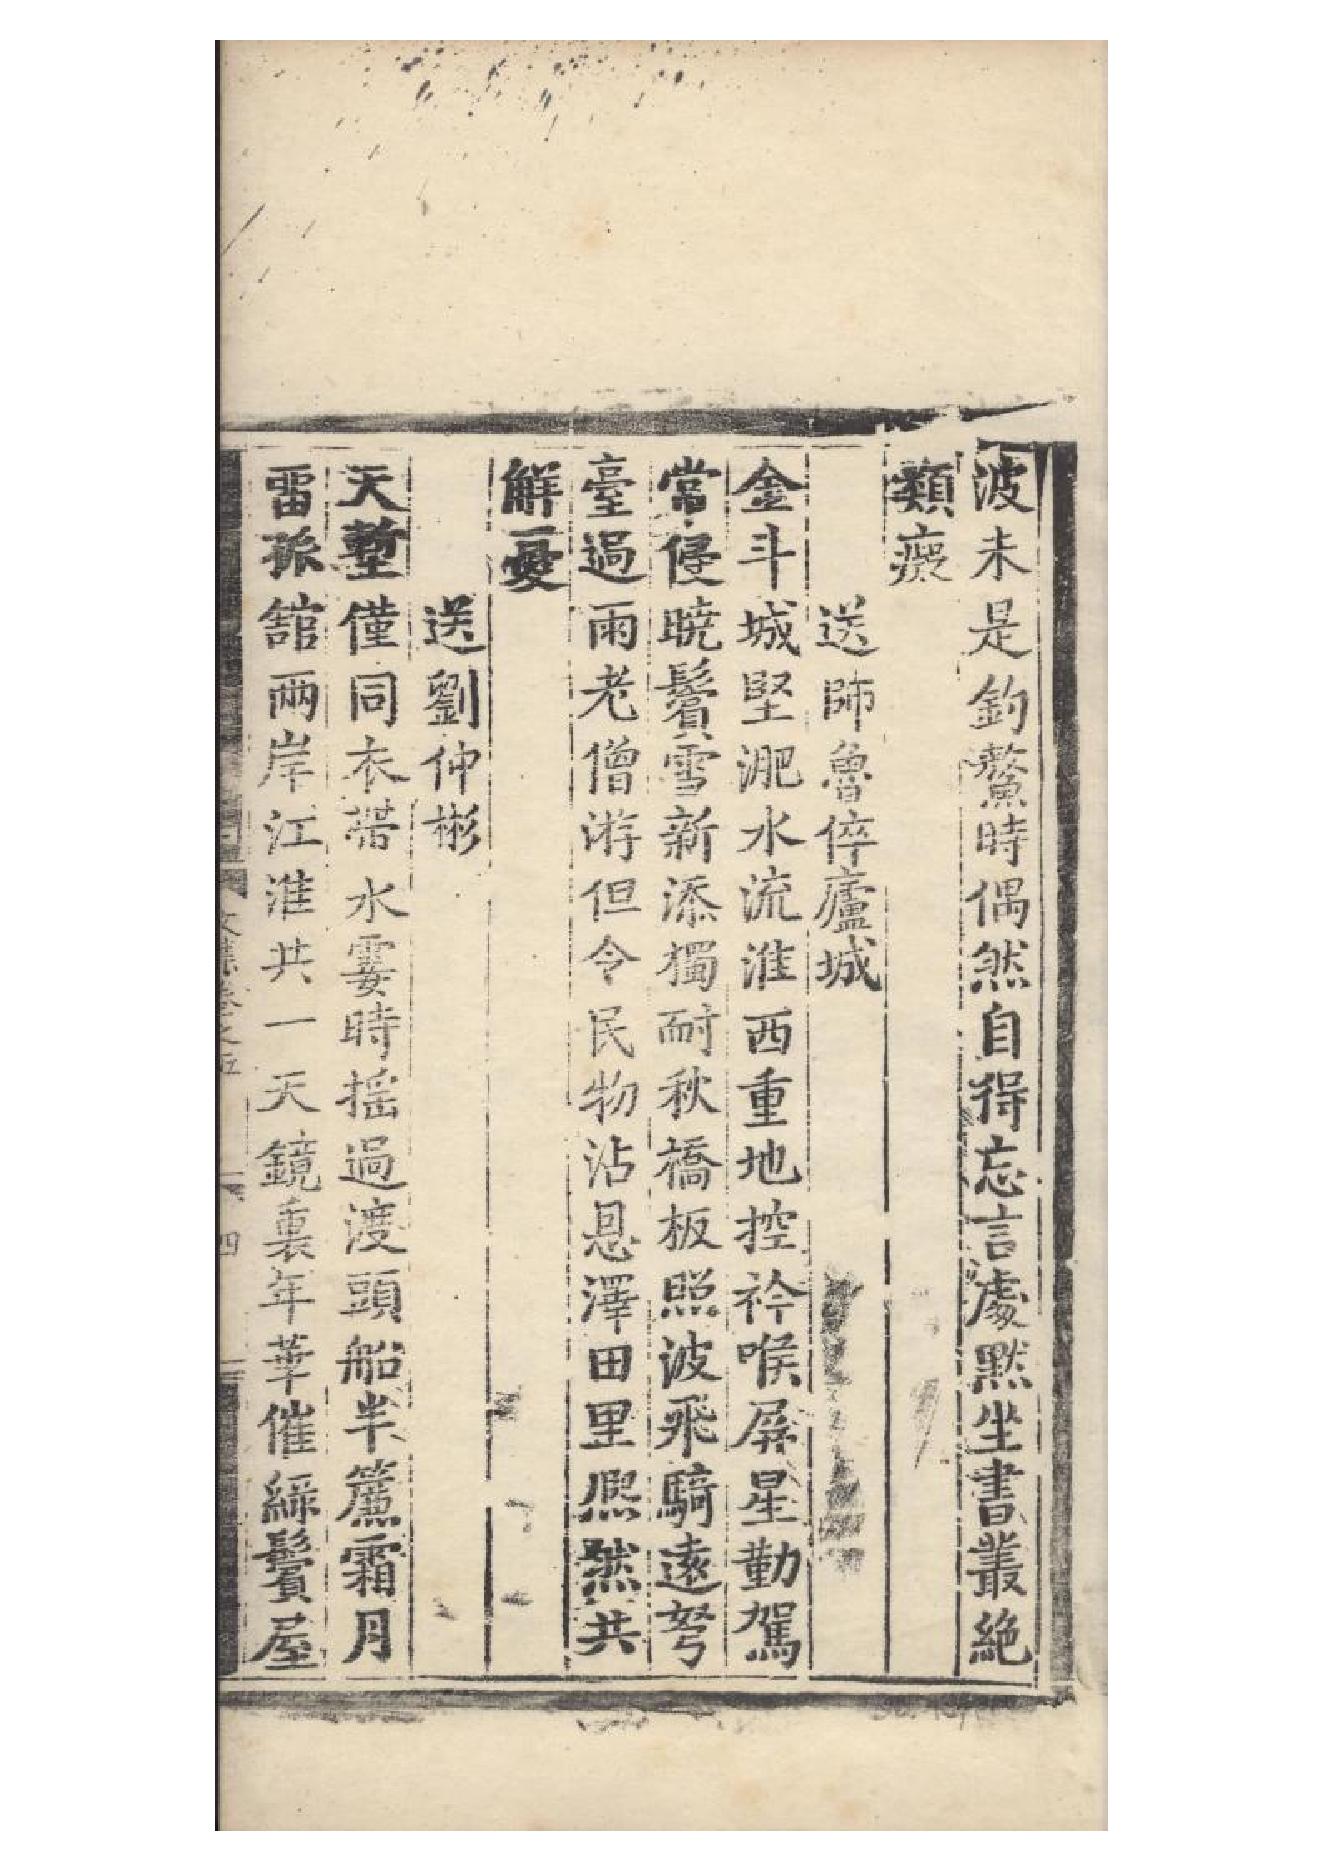 波未是釣鰲時偶然自得忘言處黙坐書叢絶
類癡
送師魯倅廬城
金斗城堅淝水流淮西重地控衿喉屏星勤駕
常侵曉鬢雪新添獨耐秋橋板照波飛騎遠弩
臺過雨老僧游但令民物沾恩澤田里熈然共
觧憂
送劉仲彬
天塹僅同衣帶水霎時揺過渡頭船半篙霜月
孫舘兩岸江淮共一天鏡裏年華催綠鬢屋
四